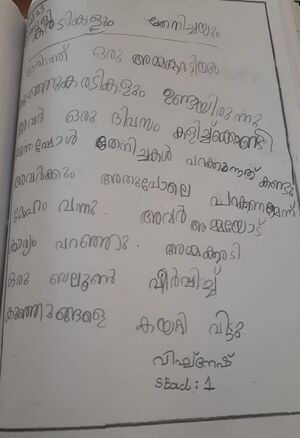 കരടികളും തേനീച്ചയും
ഒരിടത്ത് ഒരു അമ്മകരടിയും
കുഞ്ഞുകരടികളും ഉണ്ടായിരുന്നു
അവർ ഒരു ദിവസം കളിച്ച്കൊണ്ടി
രുന്നപ്പോൾ തേനിച്ചകൾ പറക്കുന്നത് കണ്ടു
അവർക്കും അതുപോലെ പറക്കണമെന്ന്
മോഹം വന്നു. അവർ അമ്മയോട്
കാര്യം പറഞ്ഞു. അമ്മക്കരടി
ഒരു ബലൂൺ വീർപ്പിച്ച്
കുഞ്ഞുങ്ങളെ കയറ്റി വിട്ടു
വിഘ്നേഷ്
STAD : 1